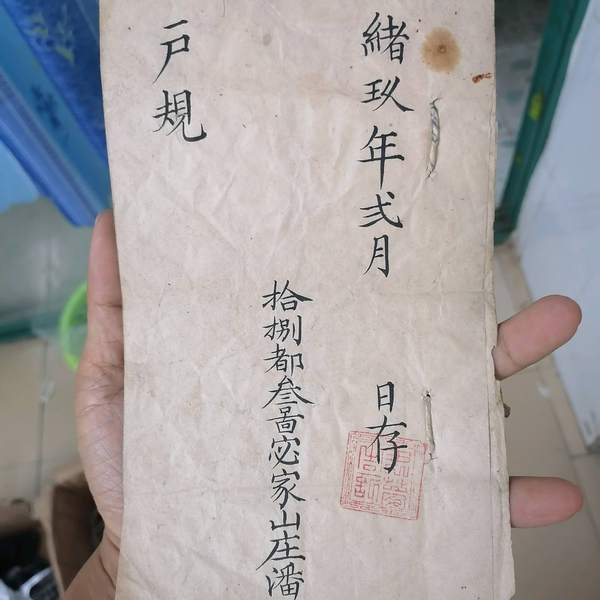 緒玖年弍月 日存
拾捌都叁啚宓家山庄潘
户規